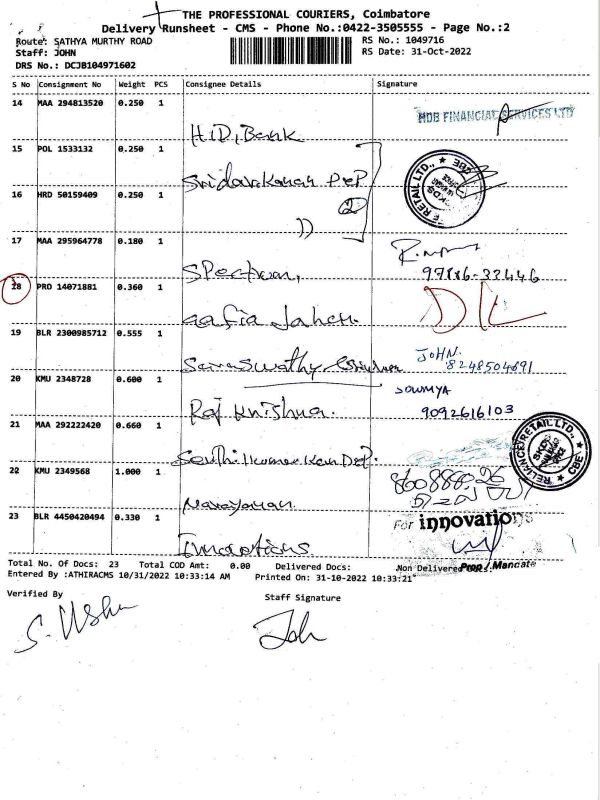 THE PROFESSIONAL COURIERS, Coimbatore
Delivery Runsheet - CMS - Phone No.:0422-3505555 - Page No.:2
Route: SATHYA MURTHY ROAD
RS No.: 1049716
Staff: JOHN
RS Date: 31-Oct-2022
DRS No.: DCJB104971602
S No Consignment No Weight PCS Consignee Details Signature
14 MAA 294813520 0.250 1
HDB FINANCIAL SERVICES LTD
Bank
15 POL 1533132 0.250 1
RETAIL LTD.,
16 HRD 50159409 0.250 1
2
17 MAA 295964778 0.180 1
Spectrum,
18 PRO 14071881 0.360 1
aafia Jahan.
DL
19 BLR 2300985712 0.555 1
JOHN.
8248504691
Saraswathy
20 KMU 2348728 0.600 1
SOWMYA
9092616103
Raj Krishna.
21 MAA 292222420 0.660 1
RELIANCE RETAIL LTD., CBE
22 KMU 2349568 1.000 1
Narayanan
23 BLR 4450420494 0.330 1
For innovations
Total No. Of Docs: 23 Total COD Amt: 0.00 Delivered Docs: Non Delivered Docs:
Prop / Mandate
Entered By :ATHIRACMS 10/31/2022 10:33:14 AM Printed On: 31-10-2022 10:33:21
Verified By
Staff Signature
S. Usha
Joh